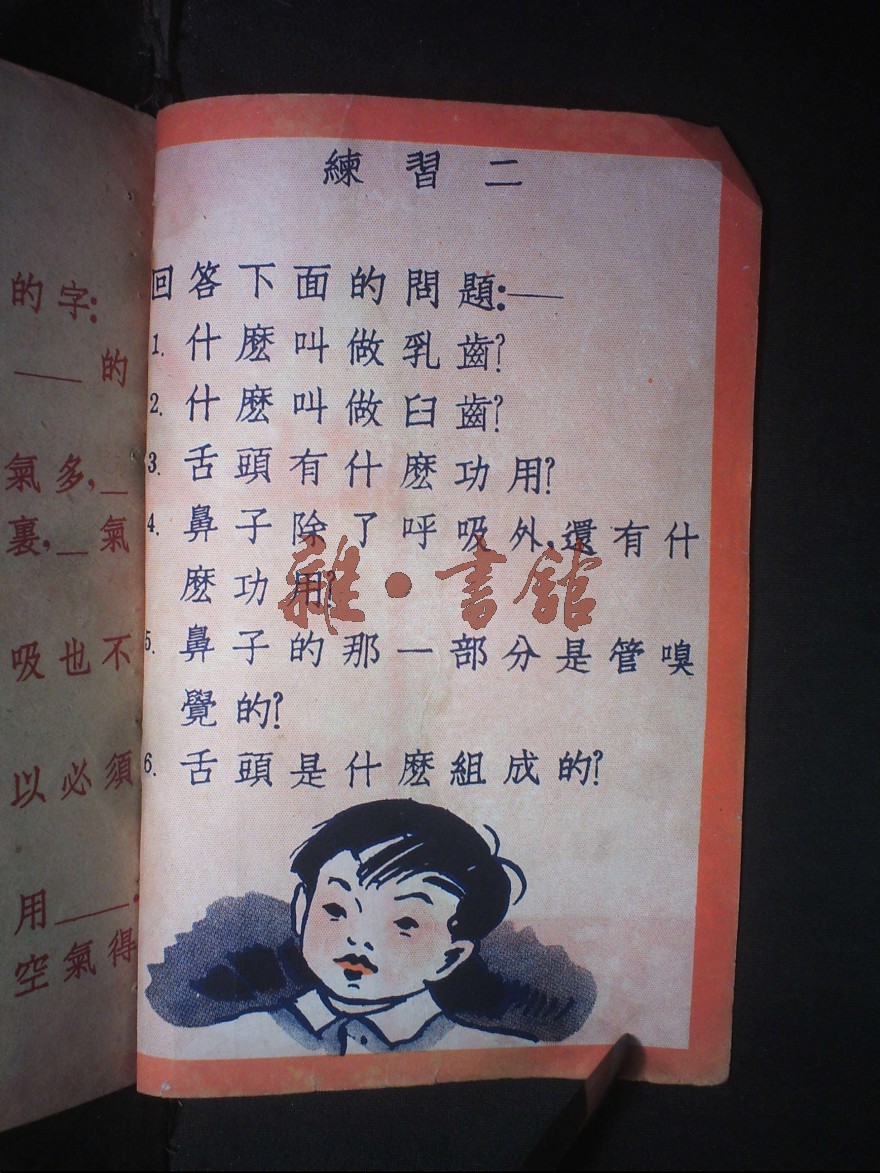 練習二
回答下面的問題:——
1. 什麽叫做乳齒?
2. 什麽叫做臼齒?
3. 舌頭有什麽功用?
4. 鼻子除了呼吸外,還有什
麽功用?
5. 鼻子的那一部分是管嗅
覺的?
6. 舌頭是什麽組成的?
的字:
—— 的
氣多,_
裏,_氣
吸也不
以必須
用——.
空氣得
雜·書館